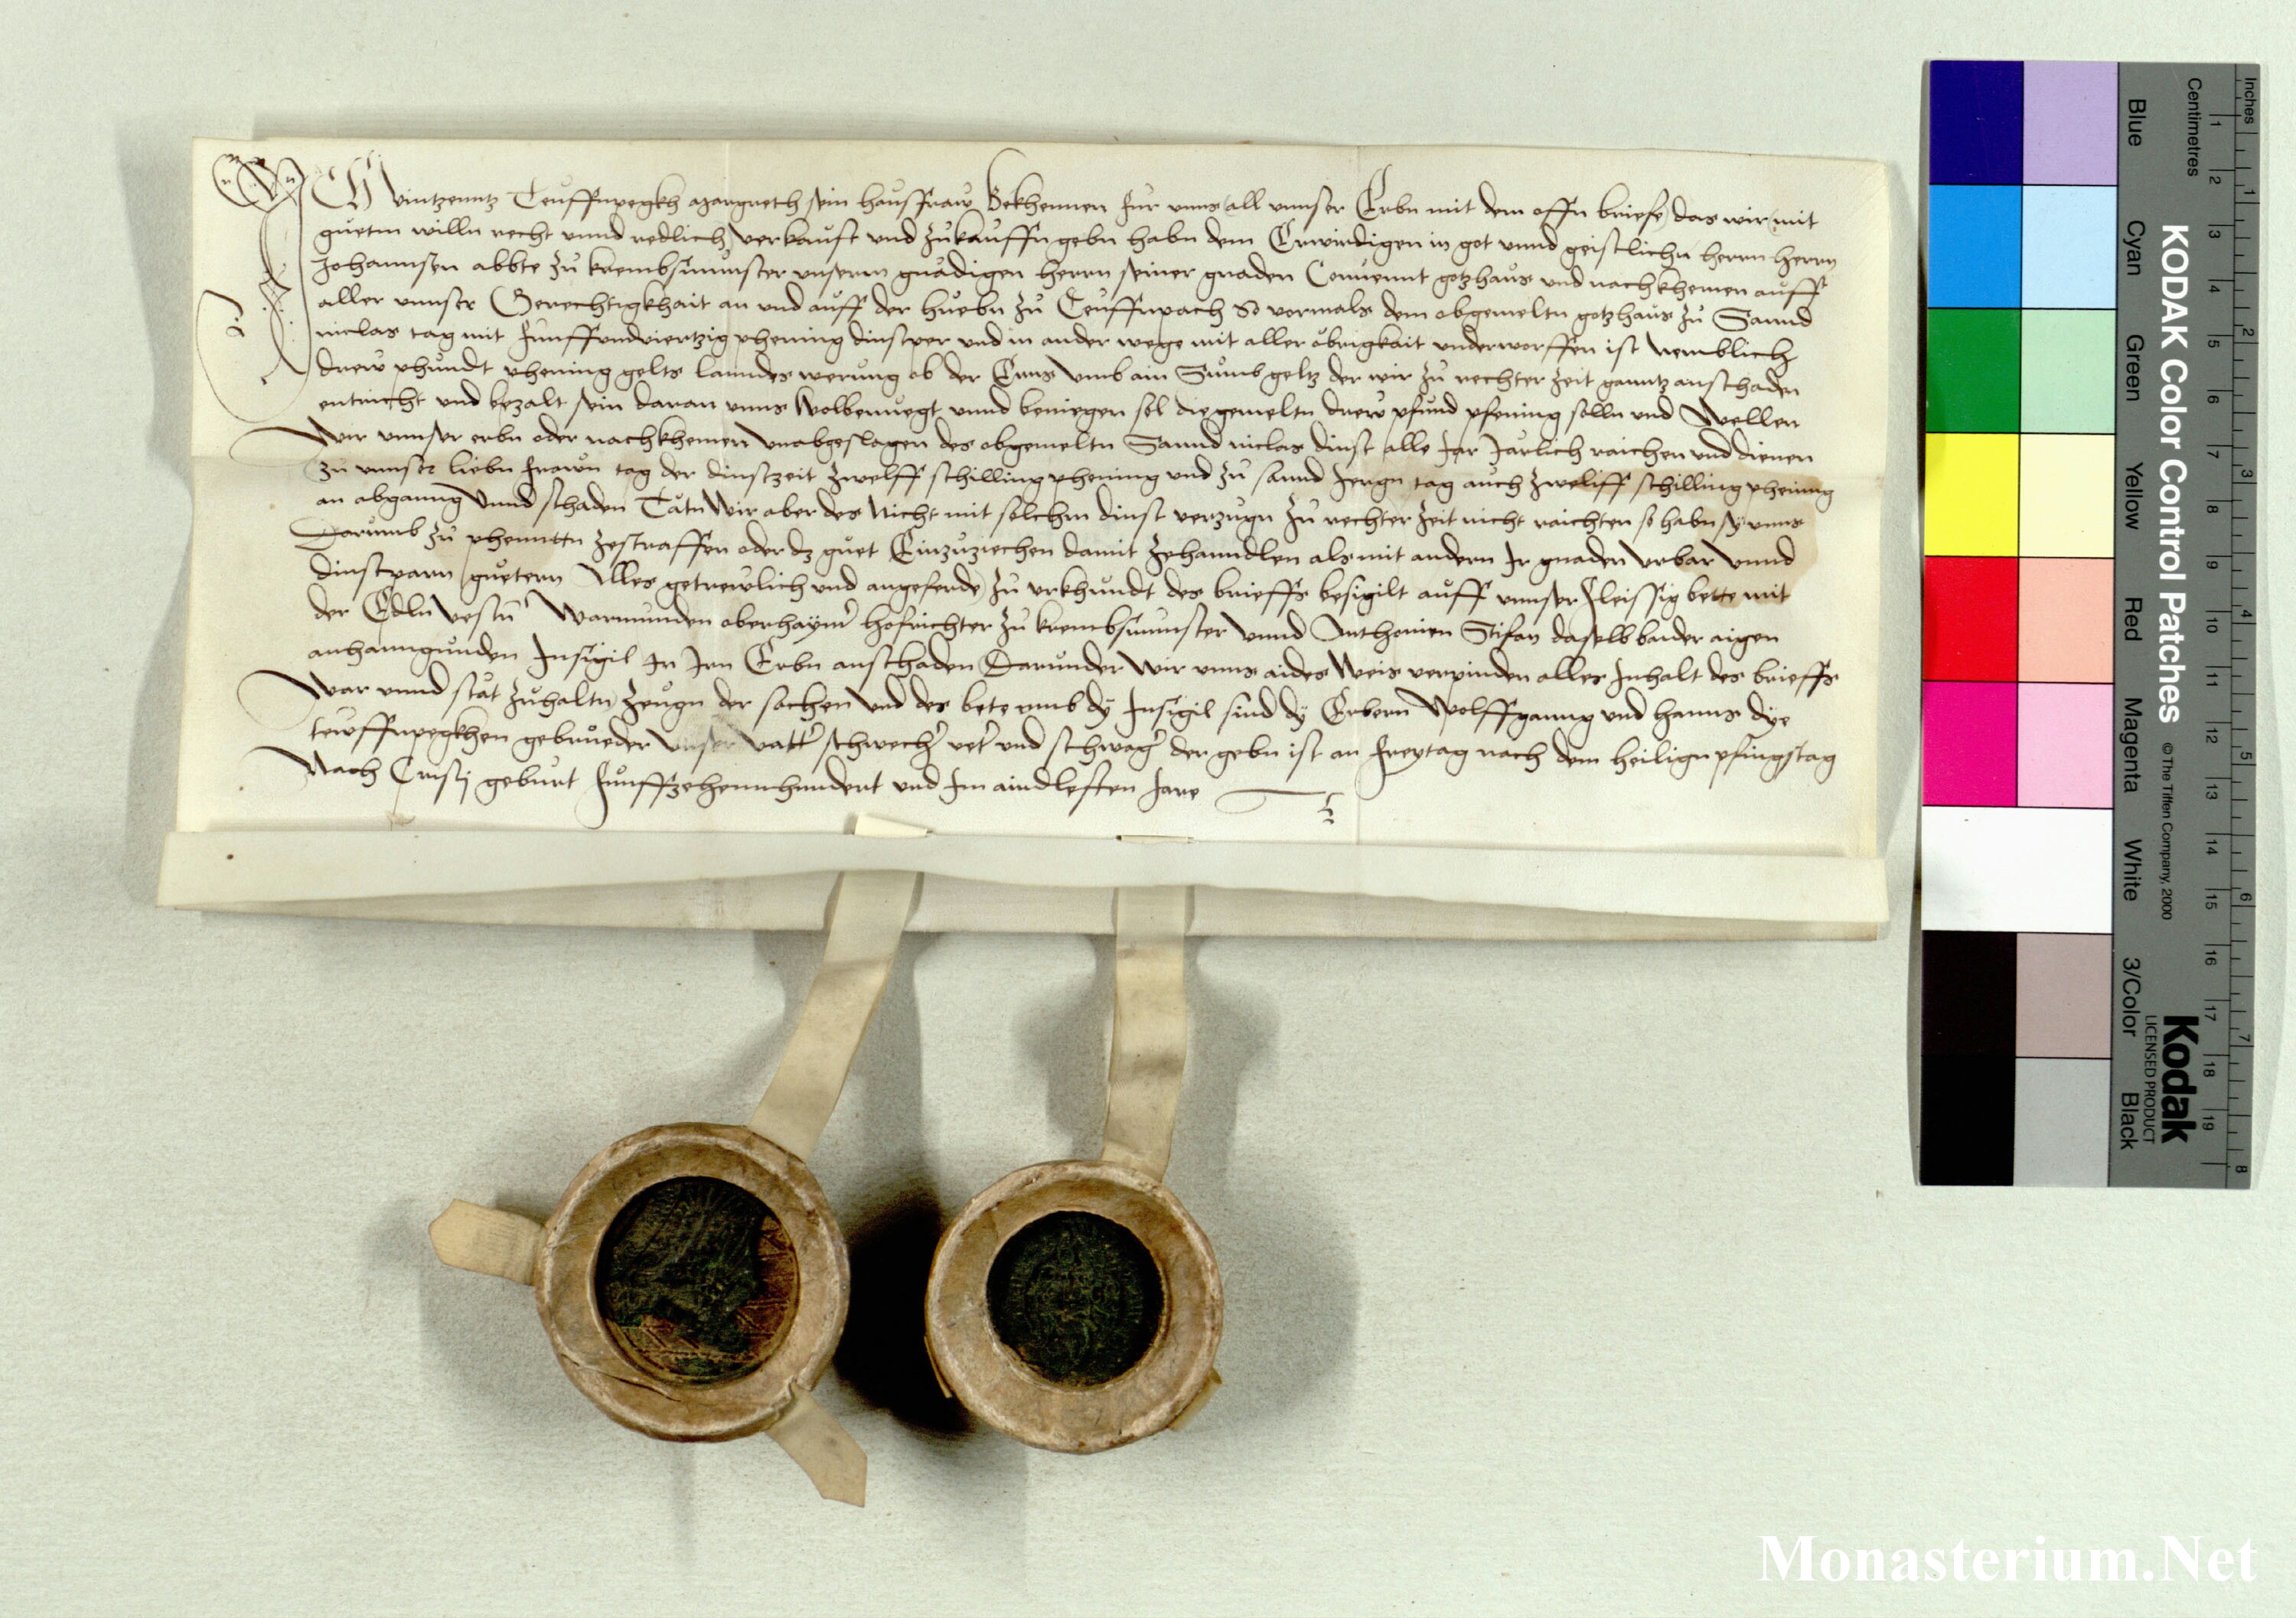 Ich vintzenntz Teuffnpegkh Margreth sein hausfraw Bekhennen für vnns all vnnser Erbn mit dem offn briefe das wir mit
guetm willn recht vnnd redlich verkaufft vnd zukauffn gebn habn dem Erwirdigen in got vnnd geistlichn herrn herrn
Johannsen abbte zu krembsmunster vnserm gnädigen herrn seiner gnaden Conuennt gotzhaus vnd nachkhemen auff
aller vnnser Gerechtigkhait an vnd auff der huebn zu Teuffnpach So vormals dem obgemeltn gotzhaus zu Sannd
niclas tag mit funffvndviertzig phening dinstper vnd in ander wege mit aller obrigkait vnderworffen ist Nemblich
drew phundt phening gelts lanndes werung ob der Enns vmb ain Sumb geltz der wir zu rechter zeit ganntz anschaden
entricht vnd bezalt sein daran vnns Wolbenuegt vnnd beniegen sol die gemeltn drew pfund pfening solln vnd Wellen
Wir vnnser erbn oder nachkhemen vnabgeslagen des obgemeltn Sannd niclas dinst alle Jar Järlich raichen vnd dienen
zu vnnser liebn frawn tag der dinstzeit zwelff schilling phening vnd zu sannd Jergn tag auch zweliff schilling phening
an abganng Vnnd schaden Tätn Wir aber des Nicht mit solchm dinst verzugn zu rechter zeit nicht raichten so habn sy vnns
Darumb zu phenntn zestraffen oder dz guet Einzuziechen damit zehanndlen als mit andern Ir gnaden Vrbar Vnnd
dinstparn guetern Alles getrewlich vnd angeferde zu vrkhundt des brieffs besigilt auff vnnser fleissig bette mit
der Edln Vestn Warmunden oberhaymer hofrichter zu krembsmunster Vnnd Anthonien Stifan daselb baider aigen
anhanngunden Insigil In Irn Erbn anschaden Darunder Wir vnns aides Weis verpinden alles Inhalt des brieffs
War vnnd stät zuhaltn zeugn der sachen Vnd des bete vmb dy Insigil sind dy Erbern Wolffganng vnd hanns dye
tewffnpegkhen gebrueder vnser vatter schwecher veter vnd schwager der gebn ist an freytag nach dem heilign pfingstag
Nach Cristj geburt funffzehennhundert vnd Im aindlefften Jare
Inches
Centimetres
1 2 3 4 5 6 7 8 9 10 11 12 13 14 15 16 17 18 19
1 2 3 4 5 6 7 8
Blue Cyan Green Yellow Red Magenta White 3/Color Black
KODAK Color Control Patches © The Tiffen Company, 2000
Kodak
LICENSED PRODUCT
Monasterium.Net